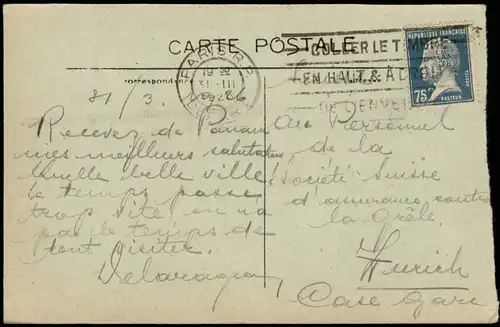 CARTE POSTALE
COLLER LE TIMBRE
EN HAUT & À DROITE
PARIS
19 30
31 III
REPUBLIQUE FRANÇAISE
POSTES
75c
PASTEUR
Correspondance
31/3.
Recevez de
mes meilleurs
belle ville
le temps passe
trop vite on n'a
pas le temps de
tout visiter.
Au Personnel
de la
Société Suisse
d'assurance contre
la Grêle.
Zurich
Case Gare